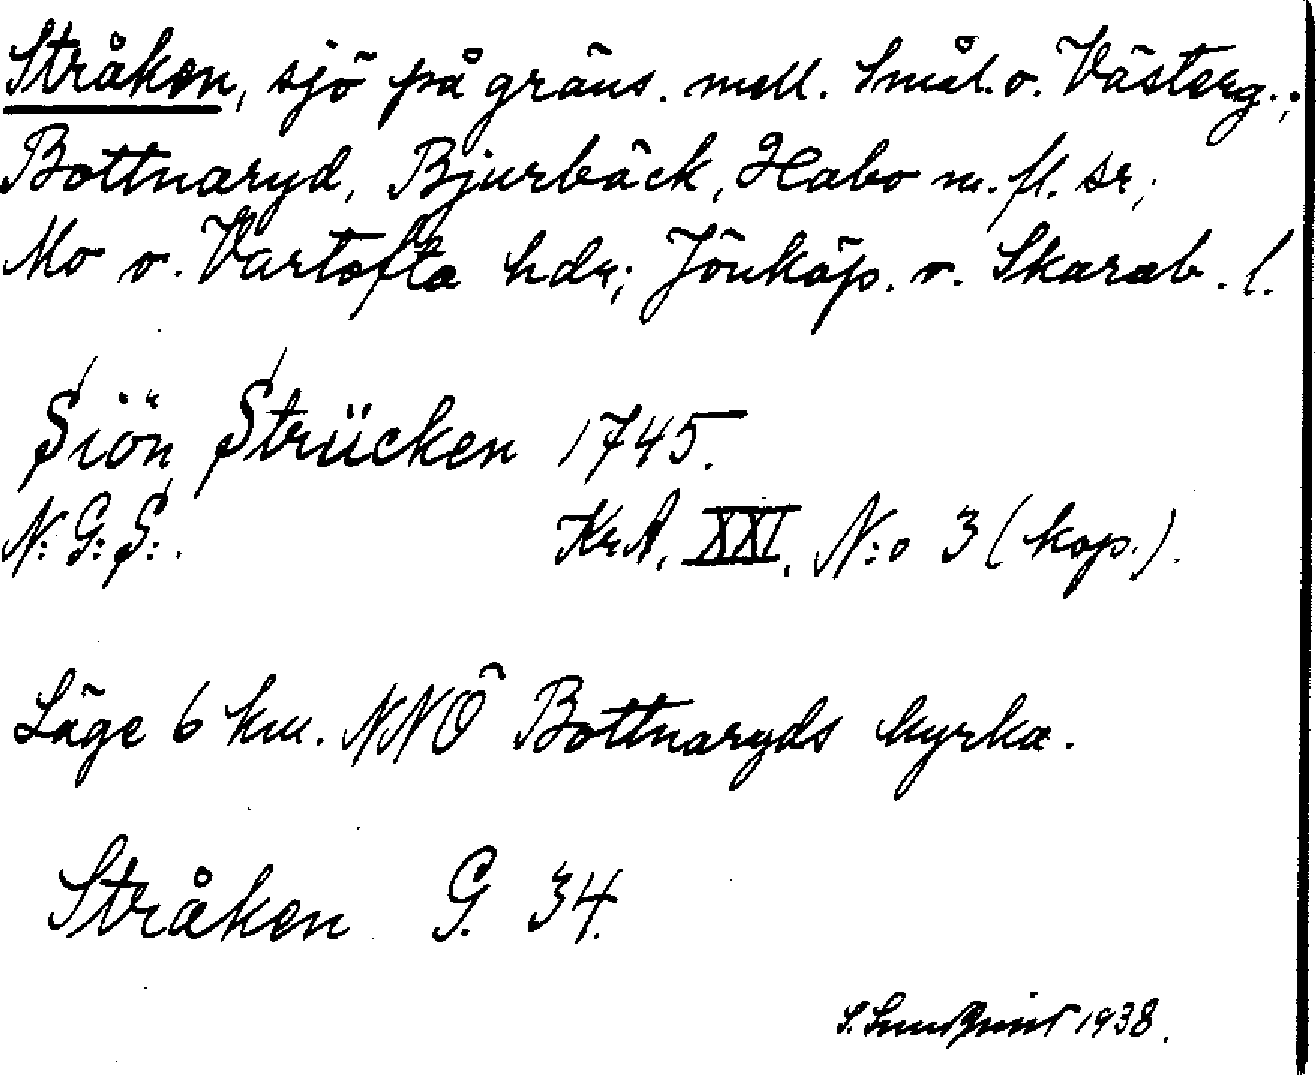 Stråken, sjö på gräns. mell. Smål. o. Västerg.;
Bottnaryd, Bjurbäck, Habo m. fl. sr,
Mo o. Vartofta hdr; Jönköp. o. Skarab. l.
Siön Strücken 1745.
N: G: S: .
Kr.A. XXI, N:o 3 (kop.).
Läge 6 km. NNÖ Bottnaryds kyrka.
Stråken G. 34.
S. 1938.